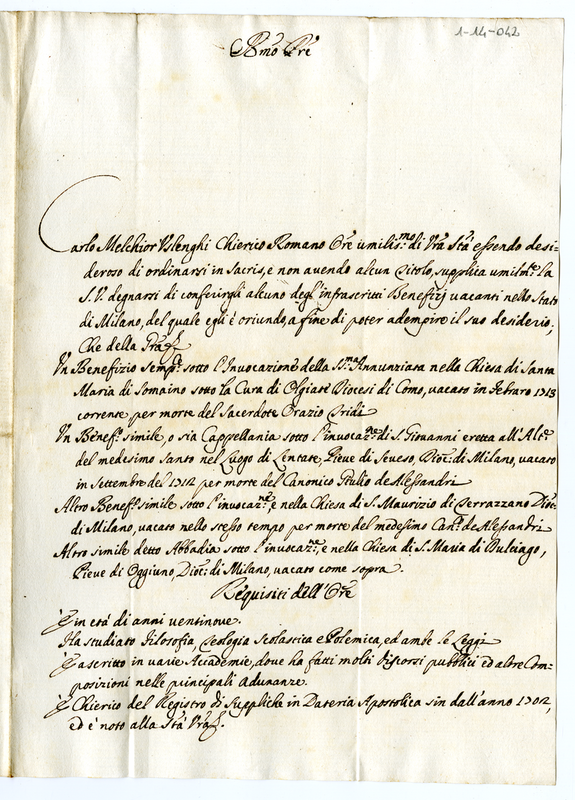 1-14-042
Bmo Pre
Carlo Melchior Uslenghi Chierico Romano Ore umilis.mo di Vra Stà essendo desi=
deroso di ordinarsi in Sacris, e non avendo alcun Titolo, supplica umilmte. la
S.V. degnarsi di conferirgli alcuno degl'infrascritti Benefizj vacanti nello Stato
di Milano, del quale egli è oriundo, a fine di poter adempire il suo desiderio,
Che della Graz.
Un Benefizio semp.ce sotto l'Invocazione della SS.ma Annunziata nella Chiesa di Santa
Maria di Somaino sotto la Cura di Olgiate Diocesi di Como, vacato in Febraro 1713
corrente per morte del Sacerdote Orazio Tridi
Un Benef.o simile, o sia Cappellania sotto l'invocaz.ne di S. Giovanni eretta all'Alt.e
del medesimo Santo nel Luogo di Lentate, Pieve di Seveso, Dioc: di Milano, vacato
in Settembre del 1712 per morte del Canonico Giulio de Alessandri
Altro Benef.o simile sotto l'invocaz.ne, e nella Chiesa di S. Maurizio di Terrazzano Dioc:
di Milano, vacato nello stesso tempo per morte del medesimo Can.o de Alessandri
Altro simile detto Abbadia sotto l'invocaz.ne, e nella Chiesa di S. Maria di Bulciago,
Pieve di Oggiuno, Dioc: di Milano, vacato come sopra.
Requisiti dell'Ore
È in età di anni ventinove.
Ha studiato Filosofia, Teologia Scolastica e Polemica, ed ambe le Leggi
È ascritto in varie Accademie, dove ha fatti molti discorsi pubblici ed altre Com=
posizioni nelle principali adunanze.
È Chierico del Registro di Suppliche in Dateria Apostolica sin dall'anno 1702,
ed è noto alla Stà Vra.